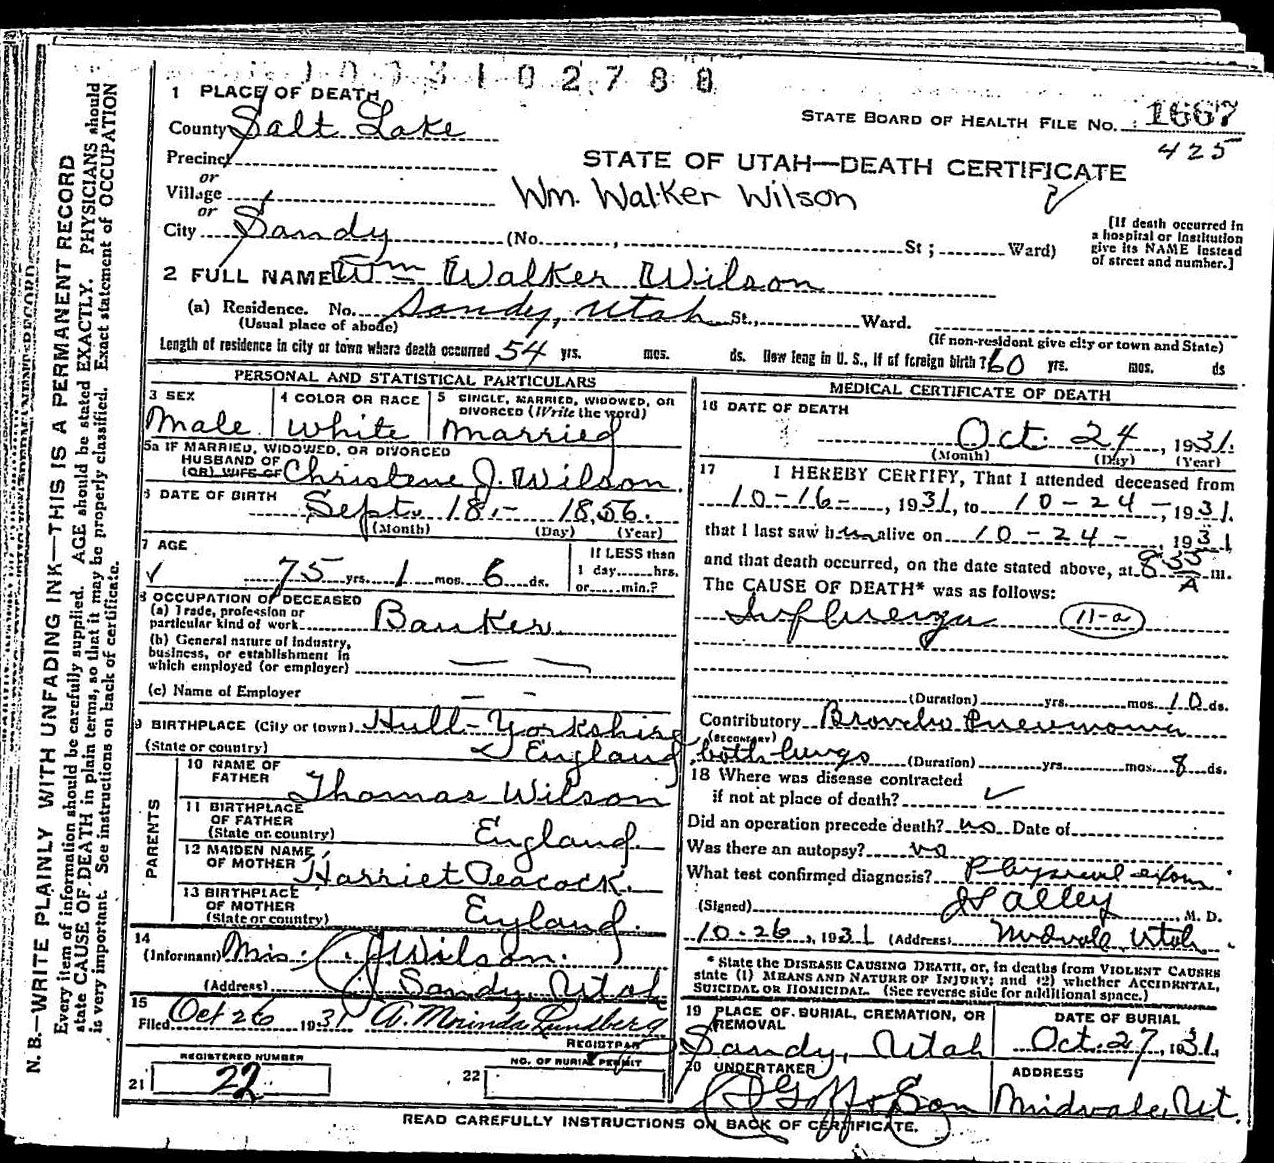 1003102788
1 PLACE OF DEATH
County Salt Lake
STATE BOARD OF HEALTH FILE NO. 1667
425
Precinct
or
STATE OF UTAH—DEATH CERTIFICATE
Village
Wm. Walker Wilson
or
City Sandy (No. , St ; Ward)
[If death occurred in a hospital or institution give its NAME instead of street and number.]
2 FULL NAME Wm Walker Wilson
(a) Residence. No. Sandy, Utah St., Ward.
(Usual place of abode)
(If non-resident give city or town and State)
Length of residence in city or town where death occurred 54 yrs. mos. ds. How long in U. S., if of foreign birth? 60 yrs. mos. ds
PERSONAL AND STATISTICAL PARTICULARS
3 SEX Male
4 COLOR OR RACE White
5 SINGLE, MARRIED, WIDOWED, OR DIVORCED (Write the word) Married
5a IF MARRIED, WIDOWED, OR DIVORCED
HUSBAND OF
(OR) WIFE OF Christene J. Wilson.
6 DATE OF BIRTH Sept. 18,- 1856.
(Month) (Day) (Year)
7 AGE
75 yrs. 1 mos. 6 ds.
If LESS than
1 day......hrs.
or......min.?
8 OCCUPATION OF DECEASED
(a) Trade, profession or
particular kind of work Banker
(b) General nature of industry,
business, or establishment in
which employed (or employer)
(c) Name of Employer
9 BIRTHPLACE (City or town) Hull-Yorkshire
(State or country) England
PARENTS
10 NAME OF FATHER Thomas Wilson
11 BIRTHPLACE OF FATHER (State or country) England.
12 MAIDEN NAME OF MOTHER Harriet Peacock.
13 BIRTHPLACE OF MOTHER (State or country) England.
14
(Informant) Mrs. C J Wilson.
(Address) Sandy, Utah
15
Filed Oct 26 1931 A. Morinda Lundberg
REGISTRAR
REGISTERED NUMBER
21 22
NO. OF BURIAL PERMIT
22
MEDICAL CERTIFICATE OF DEATH
16 DATE OF DEATH
Oct. 24, 1931.
(Month) (Day) (Year)
17 I HEREBY CERTIFY, That I attended deceased from
10-16-, 1931, to 10-24-, 1931.
that I last saw him alive on 10-24-, 1931
and that death occurred, on the date stated above, at 8 55 A m.
The CAUSE OF DEATH* was as follows:
Influenza 11-a
(Duration) yrs. mos. 10 ds.
Contributory Broncho Pneumonia
(SECONDARY)
both lungs (Duration) yrs. mos. 8 ds.
18 Where was disease contracted
if not at place of death?
Did an operation precede death? no Date of
Was there an autopsy? no
What test confirmed diagnosis? Physical exam
(Signed) Alley M. D.
10-26, 1931 (Address) Midvale, Utah
* State the DISEASE CAUSING DEATH, or, in deaths from VIOLENT CAUSES
state (1) MEANS AND NATURE OF INJURY; and (2) whether ACCIDENTAL,
SUICIDAL OR HOMICIDAL. (See reverse side for additional space.)
19 PLACE OF BURIAL, CREMATION, OR REMOVAL
Sandy, Utah
DATE OF BURIAL
Oct. 27, 1931,
20 UNDERTAKER
Goff & Son
ADDRESS
Midvale, Ut.
READ CAREFULLY INSTRUCTIONS ON BACK OF CERTIFICATE.
N. B.—WRITE PLAINLY WITH UNFADING INK—THIS IS A PERMANENT RECORD
Every item of information should be carefully supplied. AGE should be stated EXACTLY. PHYSICIANS should
state CAUSE OF DEATH in plain terms, so that it may be properly classified. Exact statement of OCCUPATION
is very important. See instructions on back of certificate.